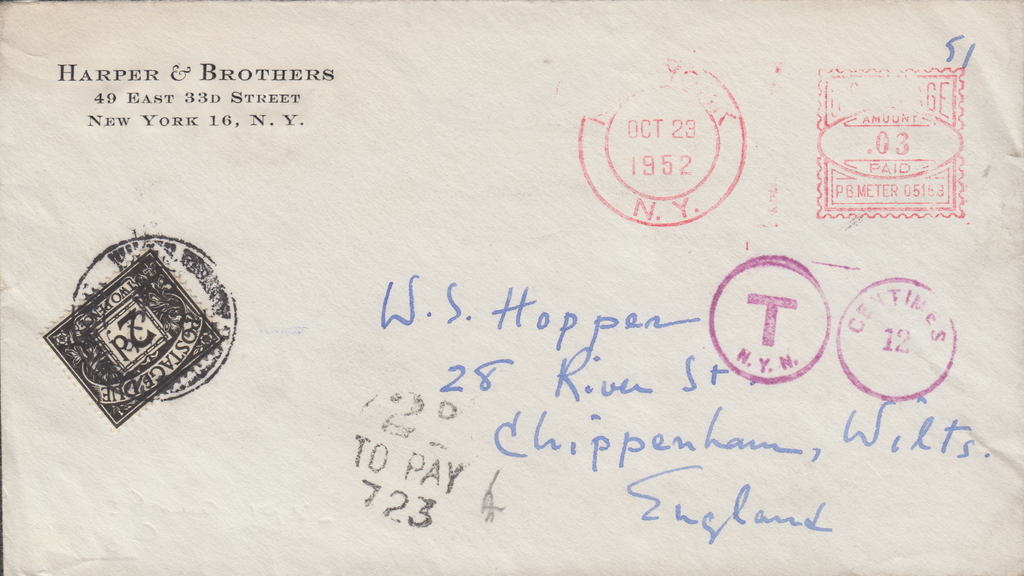 HARPER & BROTHERS
49 EAST 33D STREET
NEW YORK 16, N. Y.
51
OCT 23
1952
N. Y.
AMOUNT
.03
PAID
P.B. METER 05163
T
N.Y.N.
CENTIMES
12
W. S. Hopper
28 River St.
Chippenham, Wilts.
England
2D
TO PAY
723
POSTAGE DUE
2d